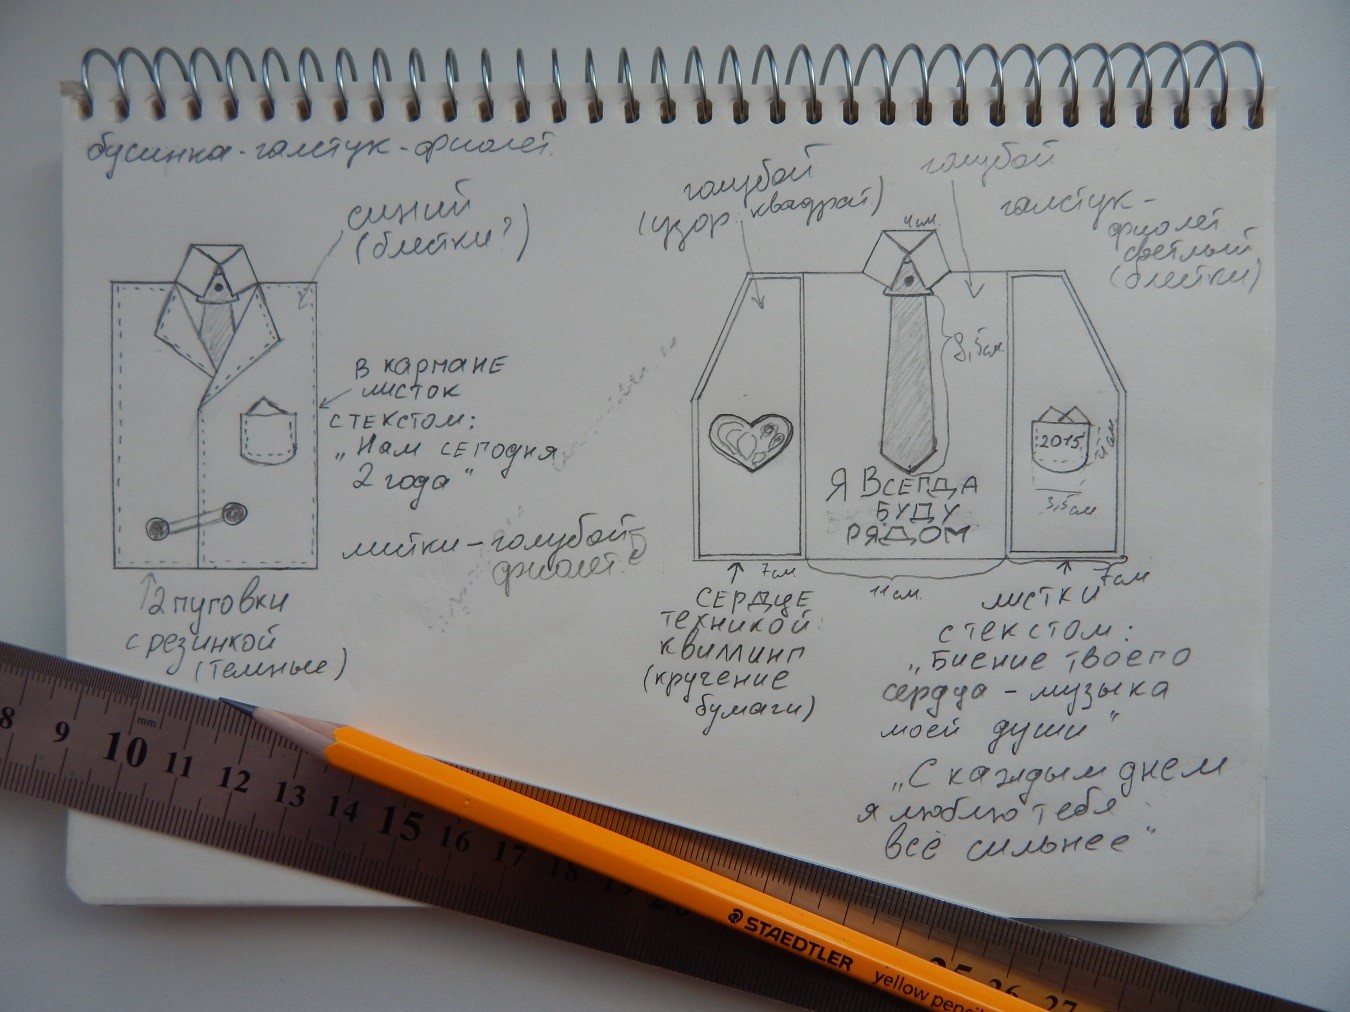 бусинка-галстук-фиолет.
синий
(блестки?)
в кармане
листок
с текстом:
"Нам сегодня
2 года"
листки-голубой
фиолет.
2 пуговки
с резинкой
(темные)
голубой
(узор квадрат)
голубой
галстук-
фиолет
светлый
(блестки)
4см.
8,5см
Я ВСЕГДА
БУДУ
РЯДОМ
2015
4см
3,5см.
7см
11см.
7см
сердце
техникой:
квиллинг
(кручение
бумаги)
листки
с текстом:
"Биение твоего
сердца - музыка
моей души"
"С каждым днем
я люблю тебя
всё сильнее"
8 9 10 11 12 13 14 15 16 17 18 19 20 25 26 27
mm
STAEDTLER yellow pencil